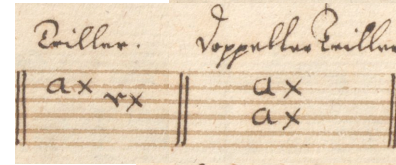 Triller. Doppelter Triller
a x r x a x
a x